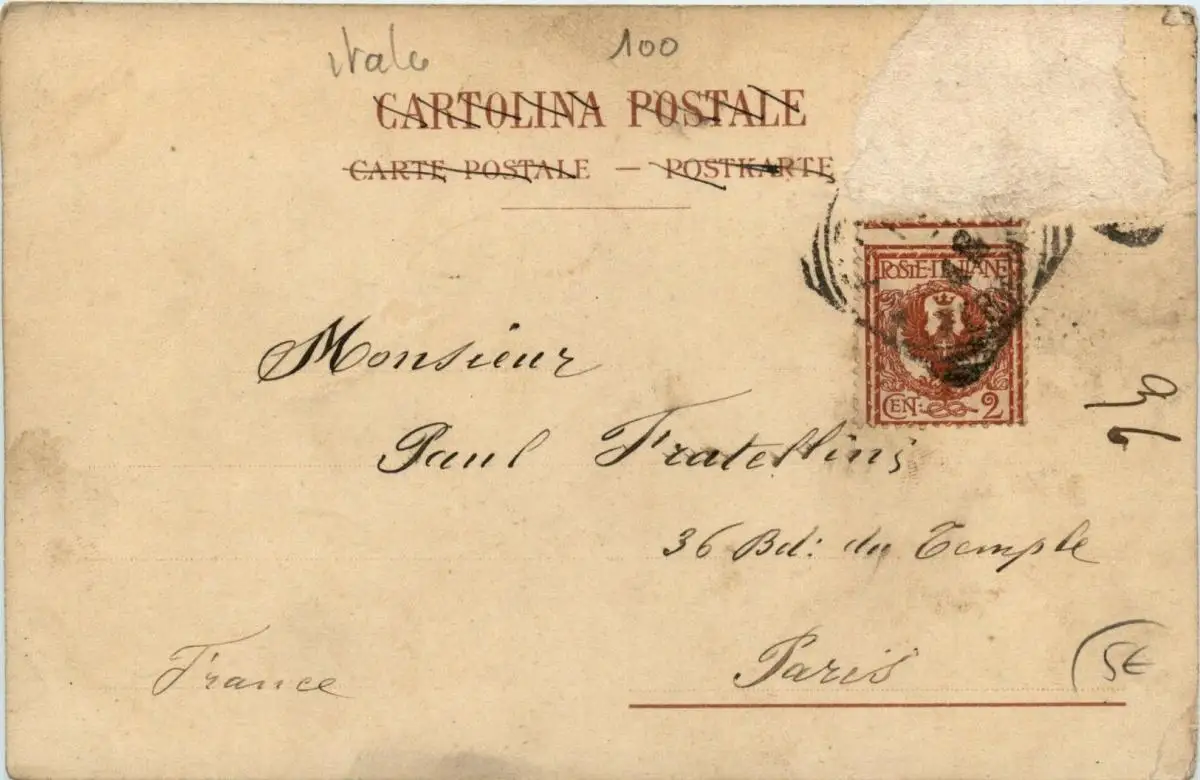 itale 100
CARTOLINA POSTALE
CARTE POSTALE — POSTKARTE
POSTE·ITALIANE
CENT. 2
Monsieur
Paul Fratellini
36 Bd: du Temple
Paris
France
5€